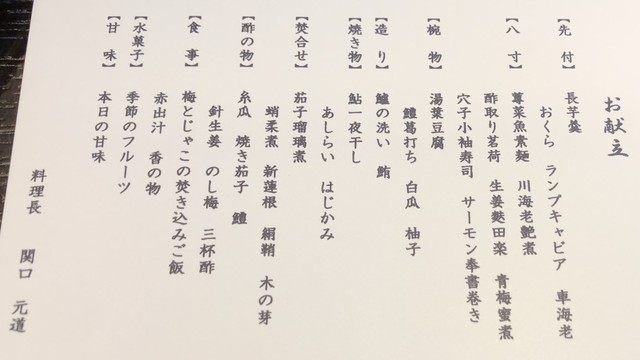 お献立
【先付】 長芋羹
おくら ランプキャビア 車海老
【八寸】 蓴菜魚素麺 川海老艶煮
酢取り茗荷 生姜麩田楽 青梅蜜煮
穴子小袖寿司 サーモン奉書巻き
【椀物】 湯葉豆腐
鱧葛打ち 白瓜 柚子
【造り】 鱸の洗い 鮪
【焼き物】 鮎一夜干し
あしらい はじかみ
【焚合せ】 茄子瑠璃煮
蛸柔煮 新蓮根 絹鞘 木の芽
【酢の物】 糸瓜 焼き茄子 鱧
針生姜 のし梅 三杯酢
【食事】 梅とじゃこの焚き込みご飯
赤出汁 香の物
【水菓子】 季節のフルーツ
【甘味】 本日の甘味
料理長 関口 元道